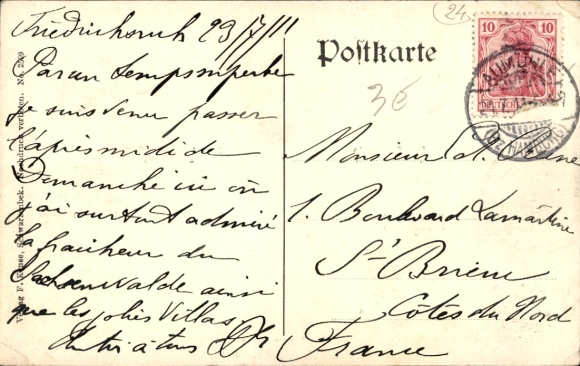 Friedrichsruh 23/7/11
Par un temps superbe
je suis venu passer
l'après midi de
Dimanche ici où
j'ai surtout admiré
la fraicheur du
Sachsenwalde ainsi
que les jolies Villas
Verlag F. Kruse, Schwarzenbek. Nachdruck verboten. No.
Postkarte
24
3€
10 10
AUMÜHLE
(BZ. HAMBURG)
Monsieur
1. Boulevard Lamartine
St Brieuc
Côtes du Nord
France